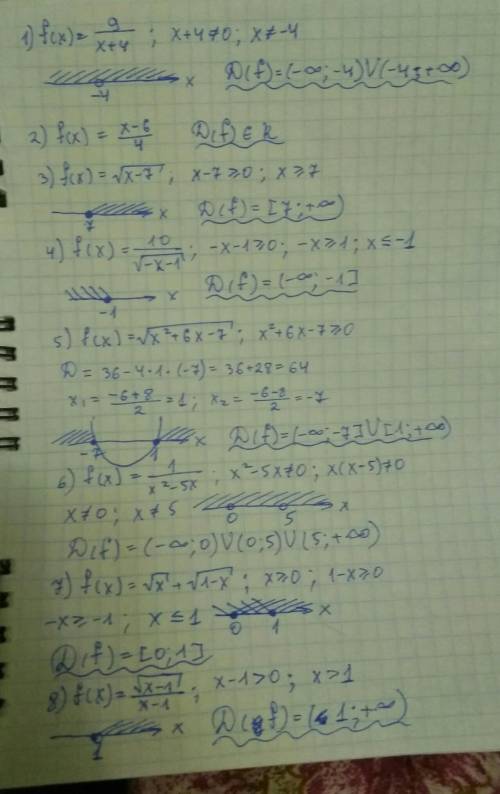 1) f(x) = 9/(x+4) ; x+4≠0; x≠-4
-4 x D(f)=(-∞; -4)∪(-4; +∞)
2) f(x) = (x-6)/4 D(f) ∈ R
3) f(x)=√(x-7) ; x-7≥0; x≥7
7 x D(f) = [7; +∞)
4) f(x) = 10/√(-x-1) ; -x-1≥0; -x≥1; x≤-1
-1 x D(f) = (-∞; -1]
5) f(x)=√(x²+6x-7) ; x²+6x-7≥0
D = 36-4·1·(-7) = 36+28=64
x₁ = (-6+8)/2 = 1; x₂ = (-6-8)/2 = -7
-7 1 x D(f) = (-∞; -7]∪[1; +∞)
6) f(x) = 1/(x²-5x) ; x²-5x≠0; x(x-5)≠0
x≠0; x≠5 0 5 x
D(f) = (-∞; 0)∪(0; 5)∪(5; +∞)
7) f(x) = √x + √(1-x) ; x≥0; 1-x≥0
-x≥-1; x≤1 0 1 x
D(f) = [0; 1]
8) f(x) = √(x-1)/(x-1) ; x-1>0; x>1
1 x D(f) = (1; +∞)